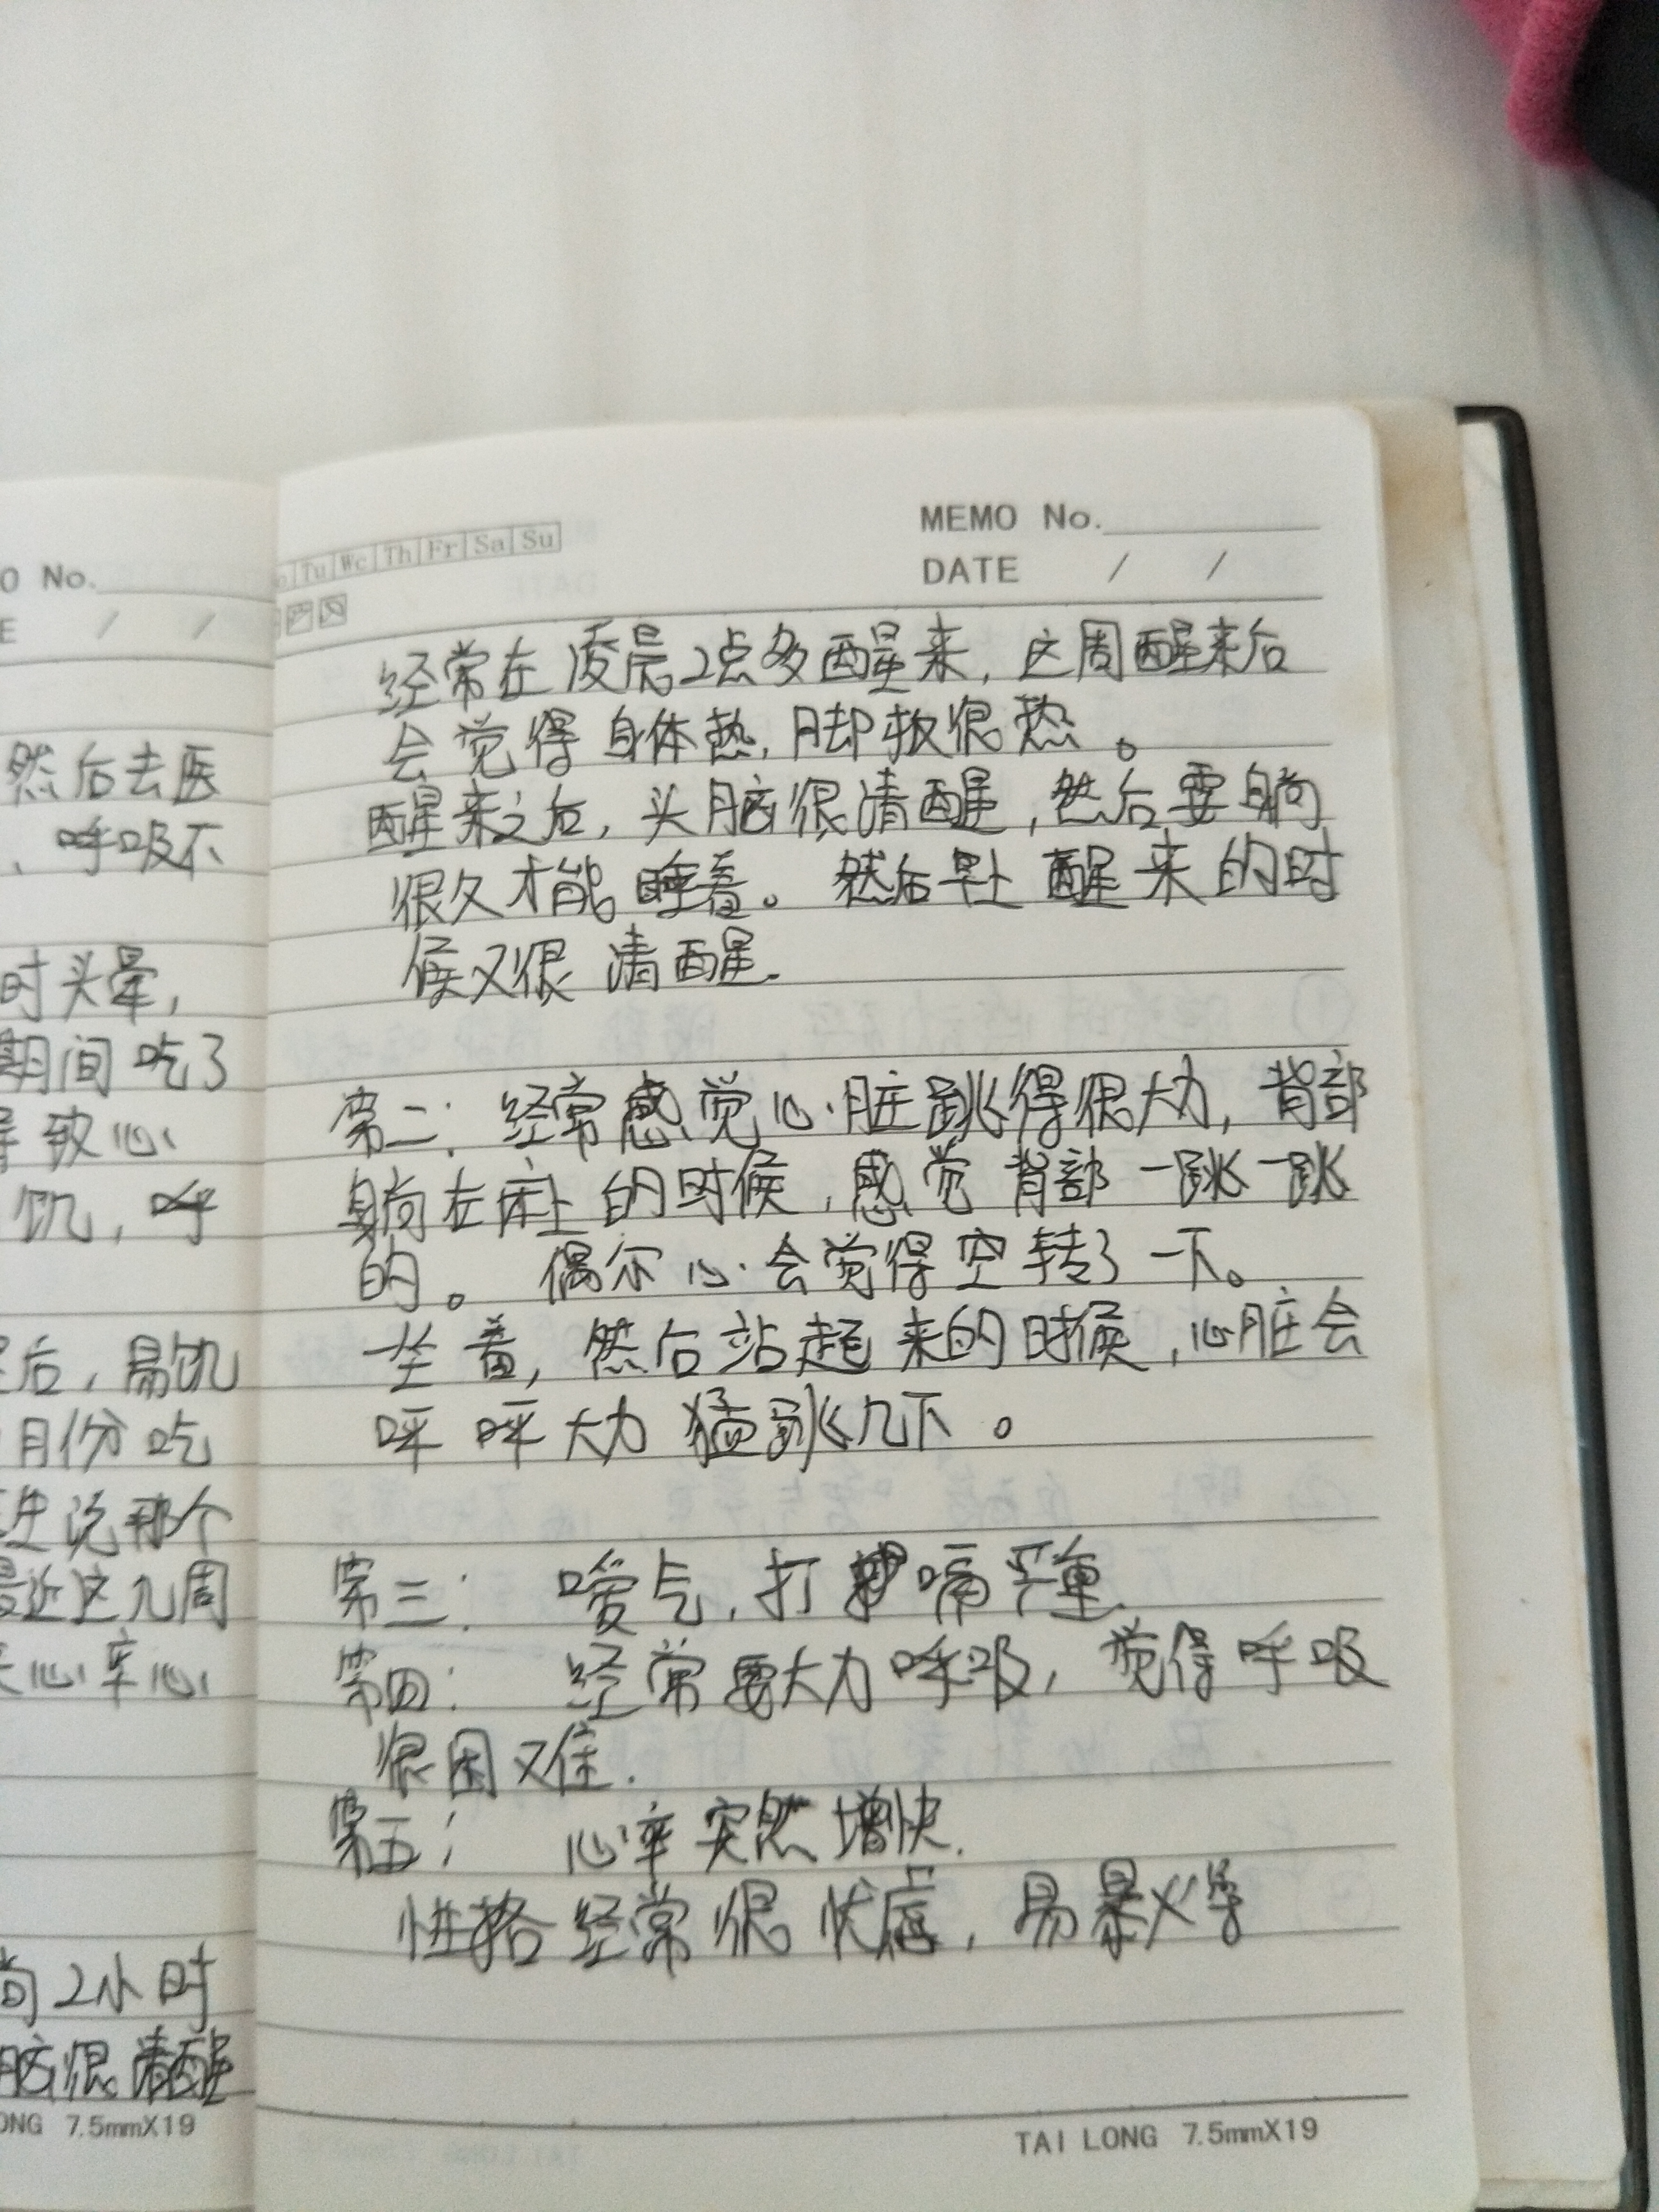 O No.
E / /
然后去医
、呼吸不
时头晕,
期间吃了
导致心
饥,呼
后,易饥
月份吃
生说那个
最近这几周
心率心
2小时
脑很清醒
ONG 7.5mmX19
Tu We Th Fr Sa Su
MEMO No.
DATE / /
经常在凌晨2点多醒来,这周醒来后
会觉得身体热,脚板很热。
醒来之后,头脑很清醒,然后要躺
很久才能睡着。然后早上醒来的时
候又很清醒.
第二:经常感觉心脏跳得很大力,背部
躺在床上的时候,感觉背部一跳一跳
的。偶尔心会觉得空转了一下。
坐着,然后站起来的时候,心脏会
呯呯大力猛跳几下。
第三:嗳气,打嗝严重.
第四:经常要大力呼吸,觉得呼吸
很困难.
第五:心率突然增快.
性格经常很忧虑,易暴火等
TAI LONG 7.5mmX19